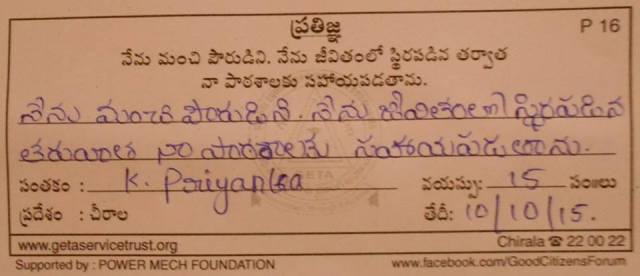 ప్రతిజ్ఞ
P 16
నేను మంచి పౌరుడిని. నేను జీవితంలో స్థిరపడిన తర్వాత
నా పాఠశాలకు సహాయపడతాను.
నేను మంచి పౌరుడిని. నేను జీవితంలో స్థిరపడిన
తరువాత నా పాఠశాలకు సహాయపడుతాను.
సంతకం : K. Priyanka వయస్సు: 15 సం॥లు
ప్రదేశం : చీరాల తేదీ: 10/10/15.
www.getaservicetrust.org Chirala ☎ 22 00 22
Supported by : POWER MECH FOUNDATION www.facebook.com/GoodCitizensForum